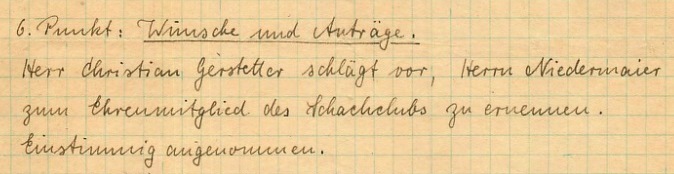 6. Punkt: Wünsche und Anträge.
Herr Christian Gerstetter schlägt vor, Herrn Niedermaier
zum Ehrenmitglied des Schachclubs zu ernennen.
Einstimmig angenommen.